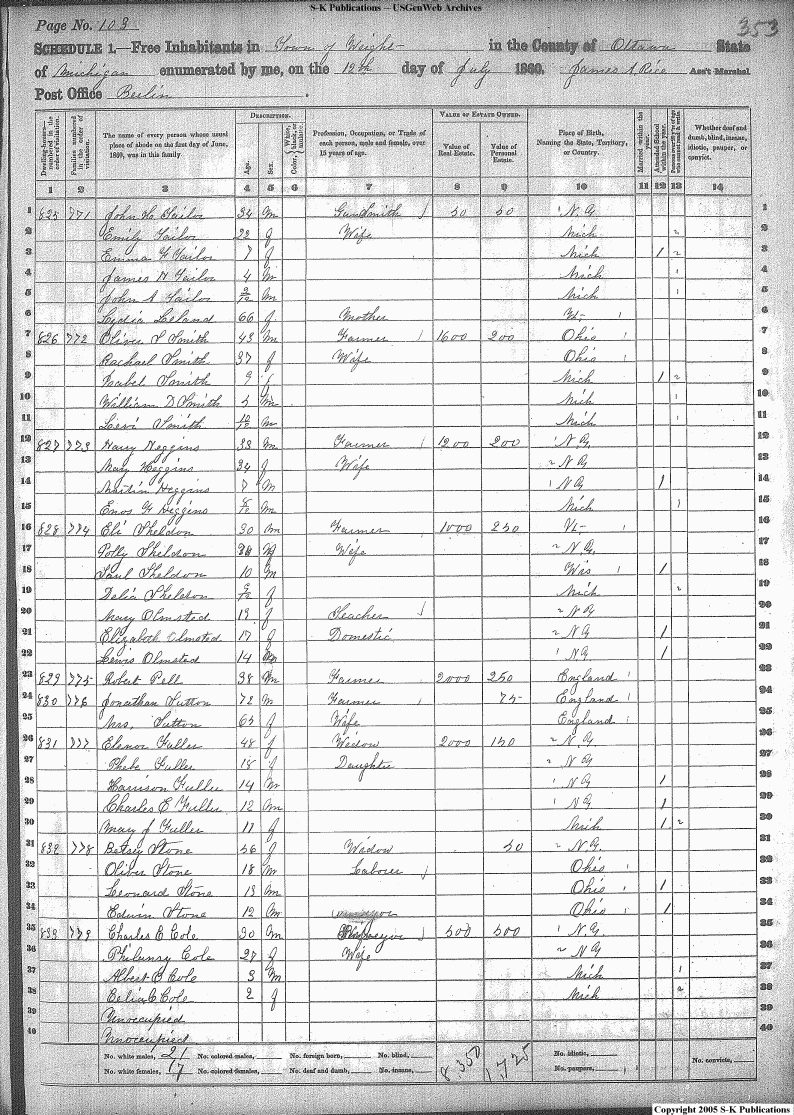 S-K Publications – USGenWeb Archives
Page No. 103
353
SCHEDULE 1.—Free Inhabitants in Town of Wright in the County of Ottawa State
of Michigan enumerated by me, on the 12th day of July 1860. James A Rice Ass't Marshal
Post Office Berlin
Dwelling-houses—numbered in the order of visitation.
Families numbered in the order of visitation.
The name of every person whose usual place of abode on the first day of June, 1860, was in this family
DESCRIPTION.
Age.
Sex.
White, Color, black, or mulatto.
Profession, Occupation, or Trade of each person, male and female, over 15 years of age.
VALUE OF ESTATE OWNED.
Value of Real Estate.
Value of Personal Estate.
Place of Birth, Naming the State, Territory, or Country.
Married within the year.
Attended School within the year.
Whether deaf and dumb, blind, insane, idiotic, pauper, or convict.
1 2 3 4 5 6 7 8 9 10 11 12 13 14
1 825 771 John H Tailor 34 m Gunsmith 50 50 N.Y. 1
2 Emily Tailor 22 f Wife Mich 2
3 Emma F Tailor 7 f Mich 1 3
4 James N Tailor 4 m Mich 4
5 John S Tailor m Mich 5
6 Lydia Leland 66 f Mother Vt. 6
7 826 772 Oliver S Smith 43 m Farmer 1600 200 Ohio 7
8 Rachael Smith 37 f Wife Ohio 8
9 Isabel Smith 9 f Mich 1 9
10 William D Smith 5 m Mich 10
11 Levi Smith 10/12 m Mich 11
12 827 773 Harry Heggins 33 m Farmer 1200 200 N.Y. 12
13 Mary Heggins 34 f Wife N.Y. 13
14 Martin Heggins 7 m N.Y. 1 14
15 Enos F Heggins 8/12 m Mich 15
16 828 774 Eli Sheldon 30 m Farmer 1000 250 Vt. 16
17 Polly Sheldon f Wife N.Y. 17
18 Paul Sheldon 10 m Wis 1 18
19 Delia Sheldon 9/12 f Mich 19
20 Mary Olmsted 19 f Teacher N.Y. 20
21 Elizabeth Olmsted 17 f Domestic N.Y. 1 21
22 Lewis Olmsted 14 m N.Y. 1 22
23 829 775 Robert Pell 38 m Farmer 2000 250 England 23
24 830 776 Jonathan Sutton 72 m Farmer 75 England 24
25 Mrs. Sutton f Wife England 25
26 831 777 Elenor Fuller 48 f Widow 2000 150 N.Y. 26
27 Pheba Fuller 18 f Daughter N.Y. 27
28 Harrison Fuller 14 m N.Y. 1 28
29 Charles E Fuller 12 m N.Y. 1 29
30 Mary J Fuller 11 f Mich 1 30
31 832 778 Betsey Stone 56 f Widow 50 N.Y. 31
32 Oliver Stone 18 m Laborer Ohio 32
33 Leonard Stone 13 m Ohio 1 33
34 Edwin Stone 12 m Ohio 1 34
35 833 779 Charles E Cole 30 m 500 500 N.Y. 35
36 Cole 27 f Wife N.Y. 36
37 Albert C Cole 3 m Mich 37
38 Celia C Cole 2 f Mich 38
39 Unoccupied 39
40 Unoccupied 40
No. white males, 21 No. colored males, No. foreign born, No. blind, 8,350 1,725 No. idiotic, No. convicts,
No. white females, 17 No. colored females, No. deaf and dumb, No. insane, No. paupers,
Copyright 2005 S-K Publications